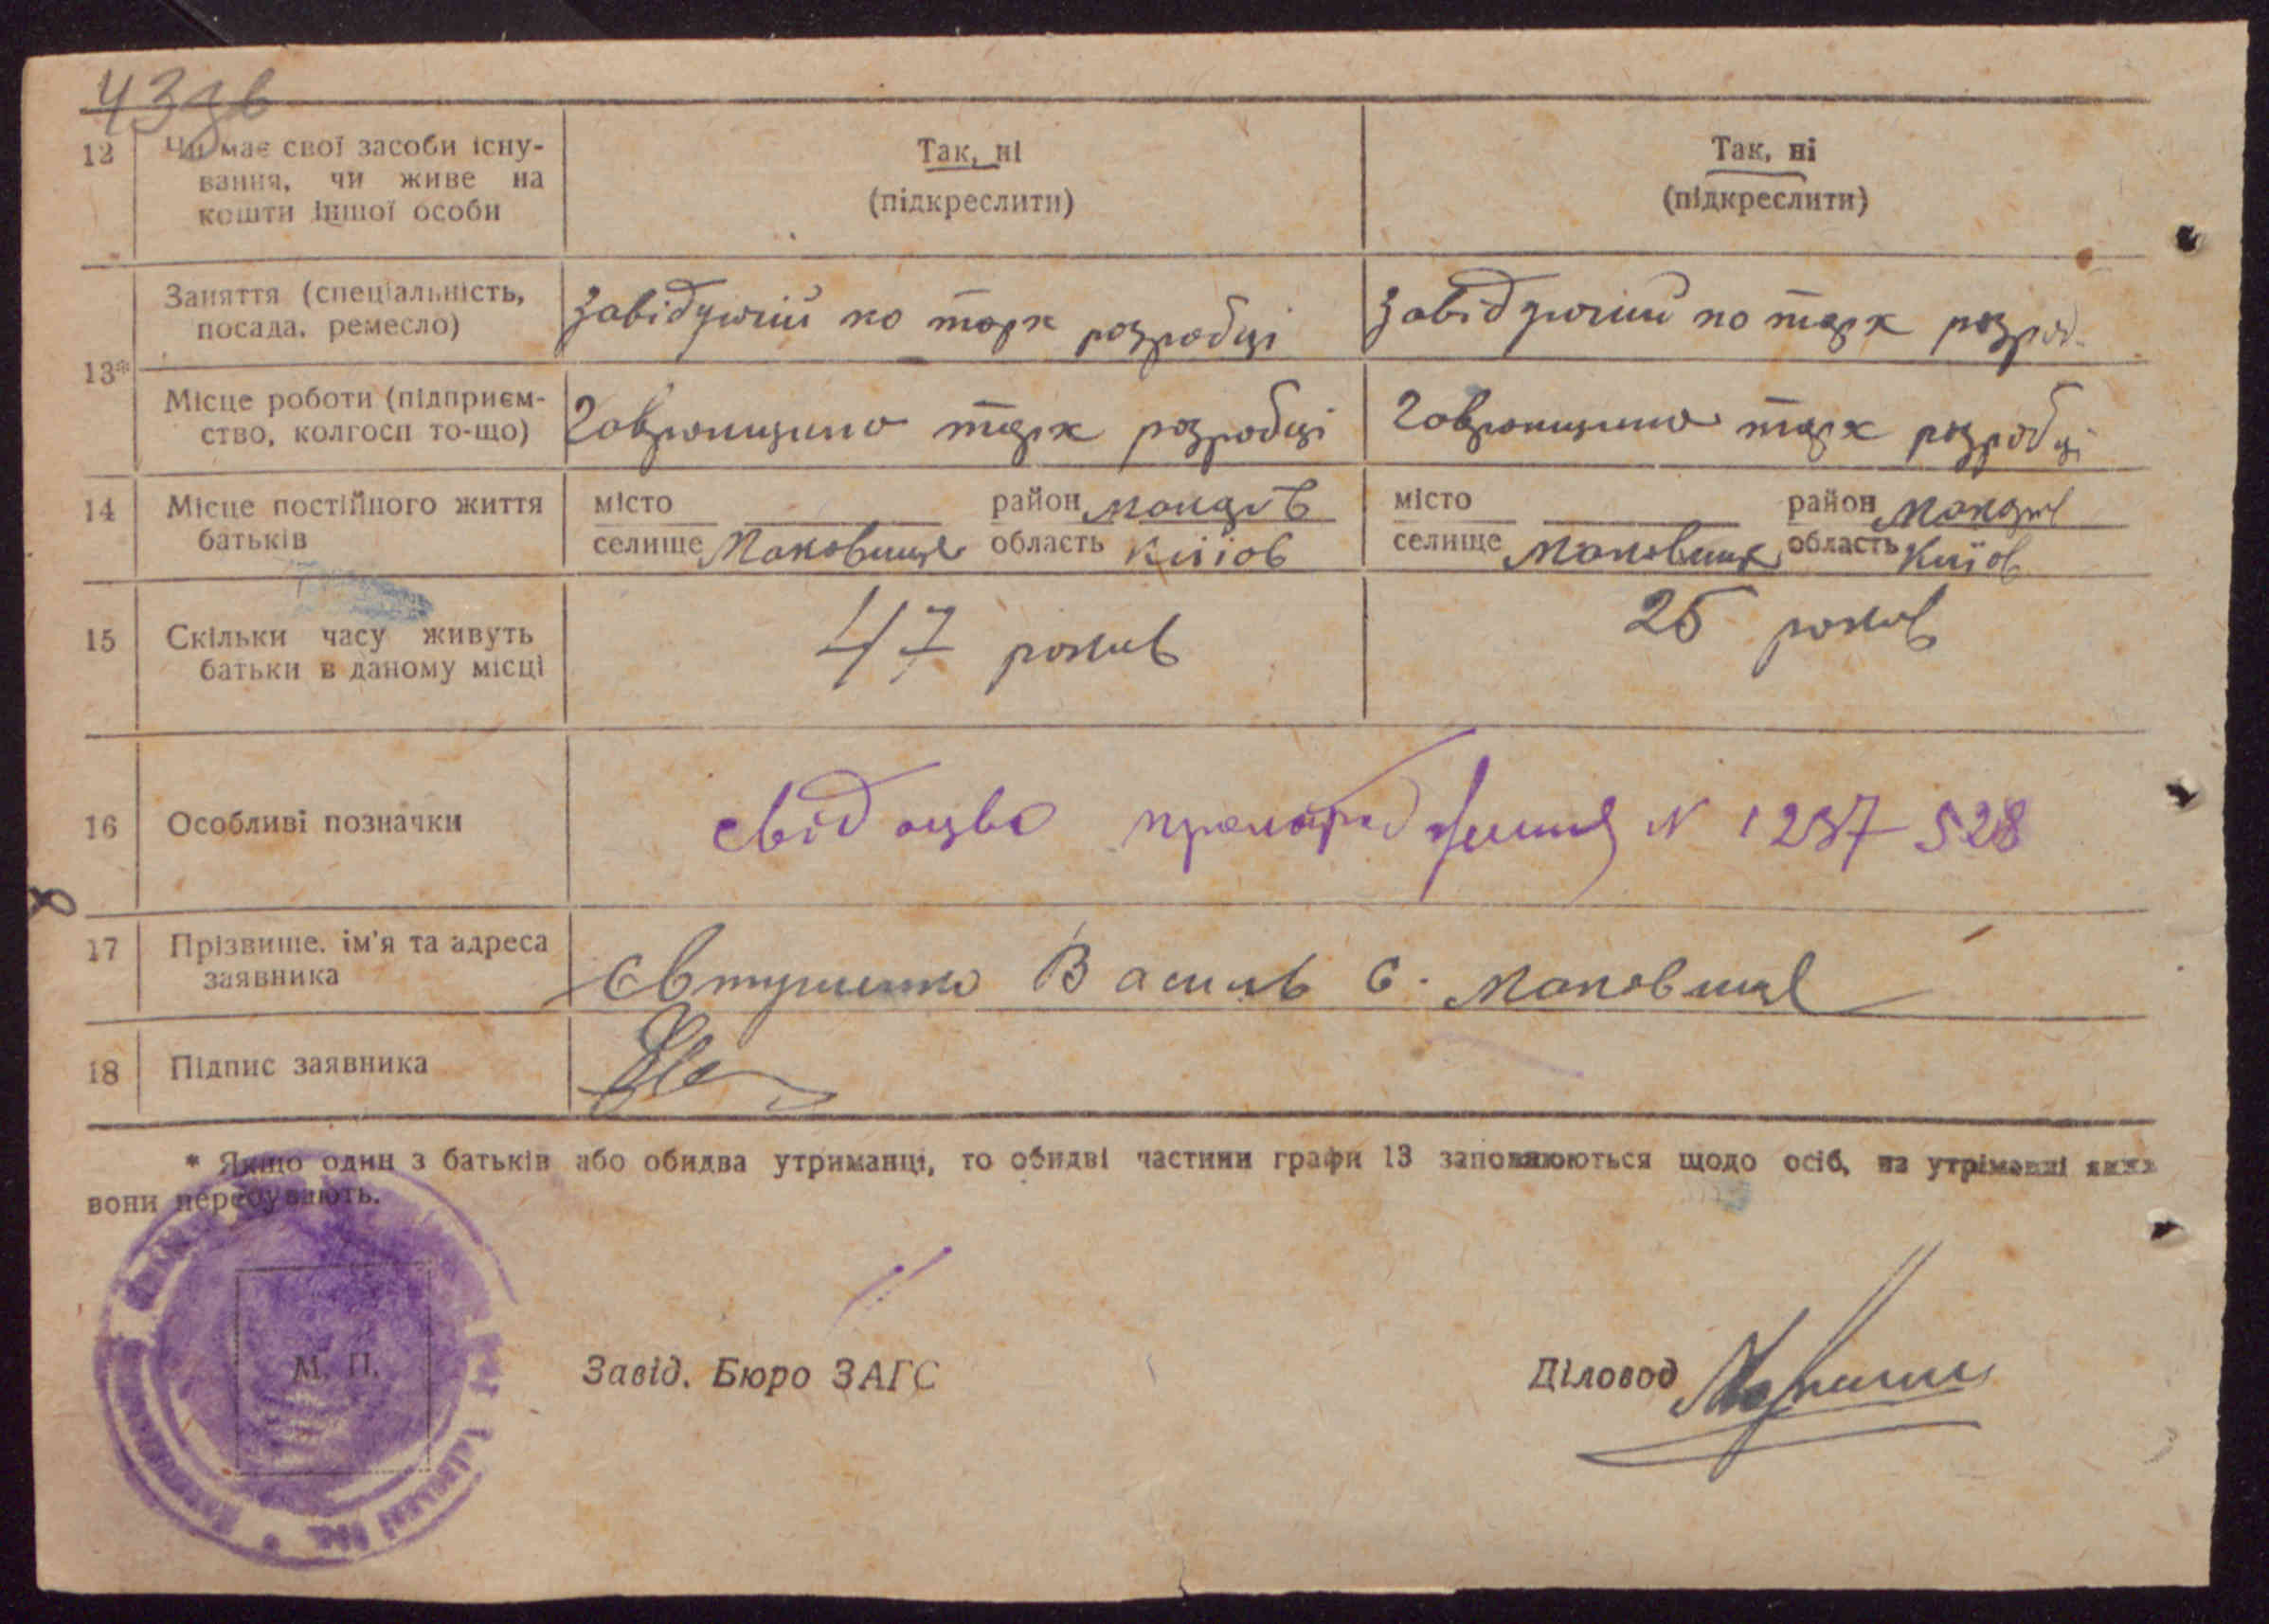 43зв
12 Чи має свої засоби існу-
вання, чи живе на
кошти іншої особи
Так, ні
(підкреслити)
Так, ні
(підкреслити)
13*
Заняття (спеціальність,
посада, ремесло)
Завідуючій по торх розробці
Завідуючій по торх розроб.
Місце роботи (підприєм-
ство, колгосп то-що)
Говронщино торх розробці
Говронщино торх розробці
14 Місце постійного життя
батьків
місто район Макарів
селище Маковище область Київ
місто район Макарів
селище Маковище область Київ
15 Скільки часу живуть
батьки в даному місці
47 років
25 років
16 Особливі позначки
свідоцво N 1237528
17 Прізвище, ім'я та адреса
заявника
Євтушенко Василь С. Маковище
18 Підпис заявника
* Якщо один з батьків або обидва утриманці, то обидві частини графи 13 заповнюються щодо осіб, на утріманні яких
вони перебувають.
М. П.
Завід. Бюро ЗАГС
Діловод